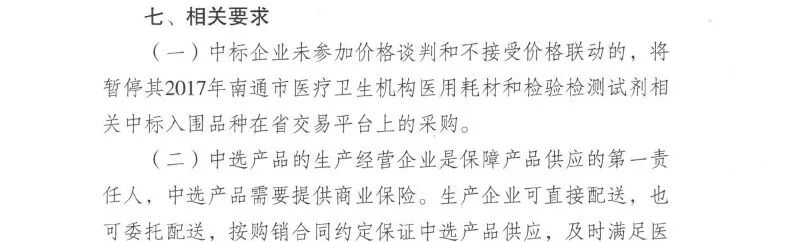 七、相关要求
（一）中标企业未参加价格谈判和不接受价格联动的，将
暂停其2017年南通市医疗卫生机构医用耗材和检验检测试剂相
关中标入围品种在省交易平台上的采购。
（二）中选产品的生产经营企业是保障产品供应的第一责
任人，中选产品需要提供商业保险。生产企业可直接配送，也
可委托配送，按购销合同约定保证中选产品供应，及时满足医